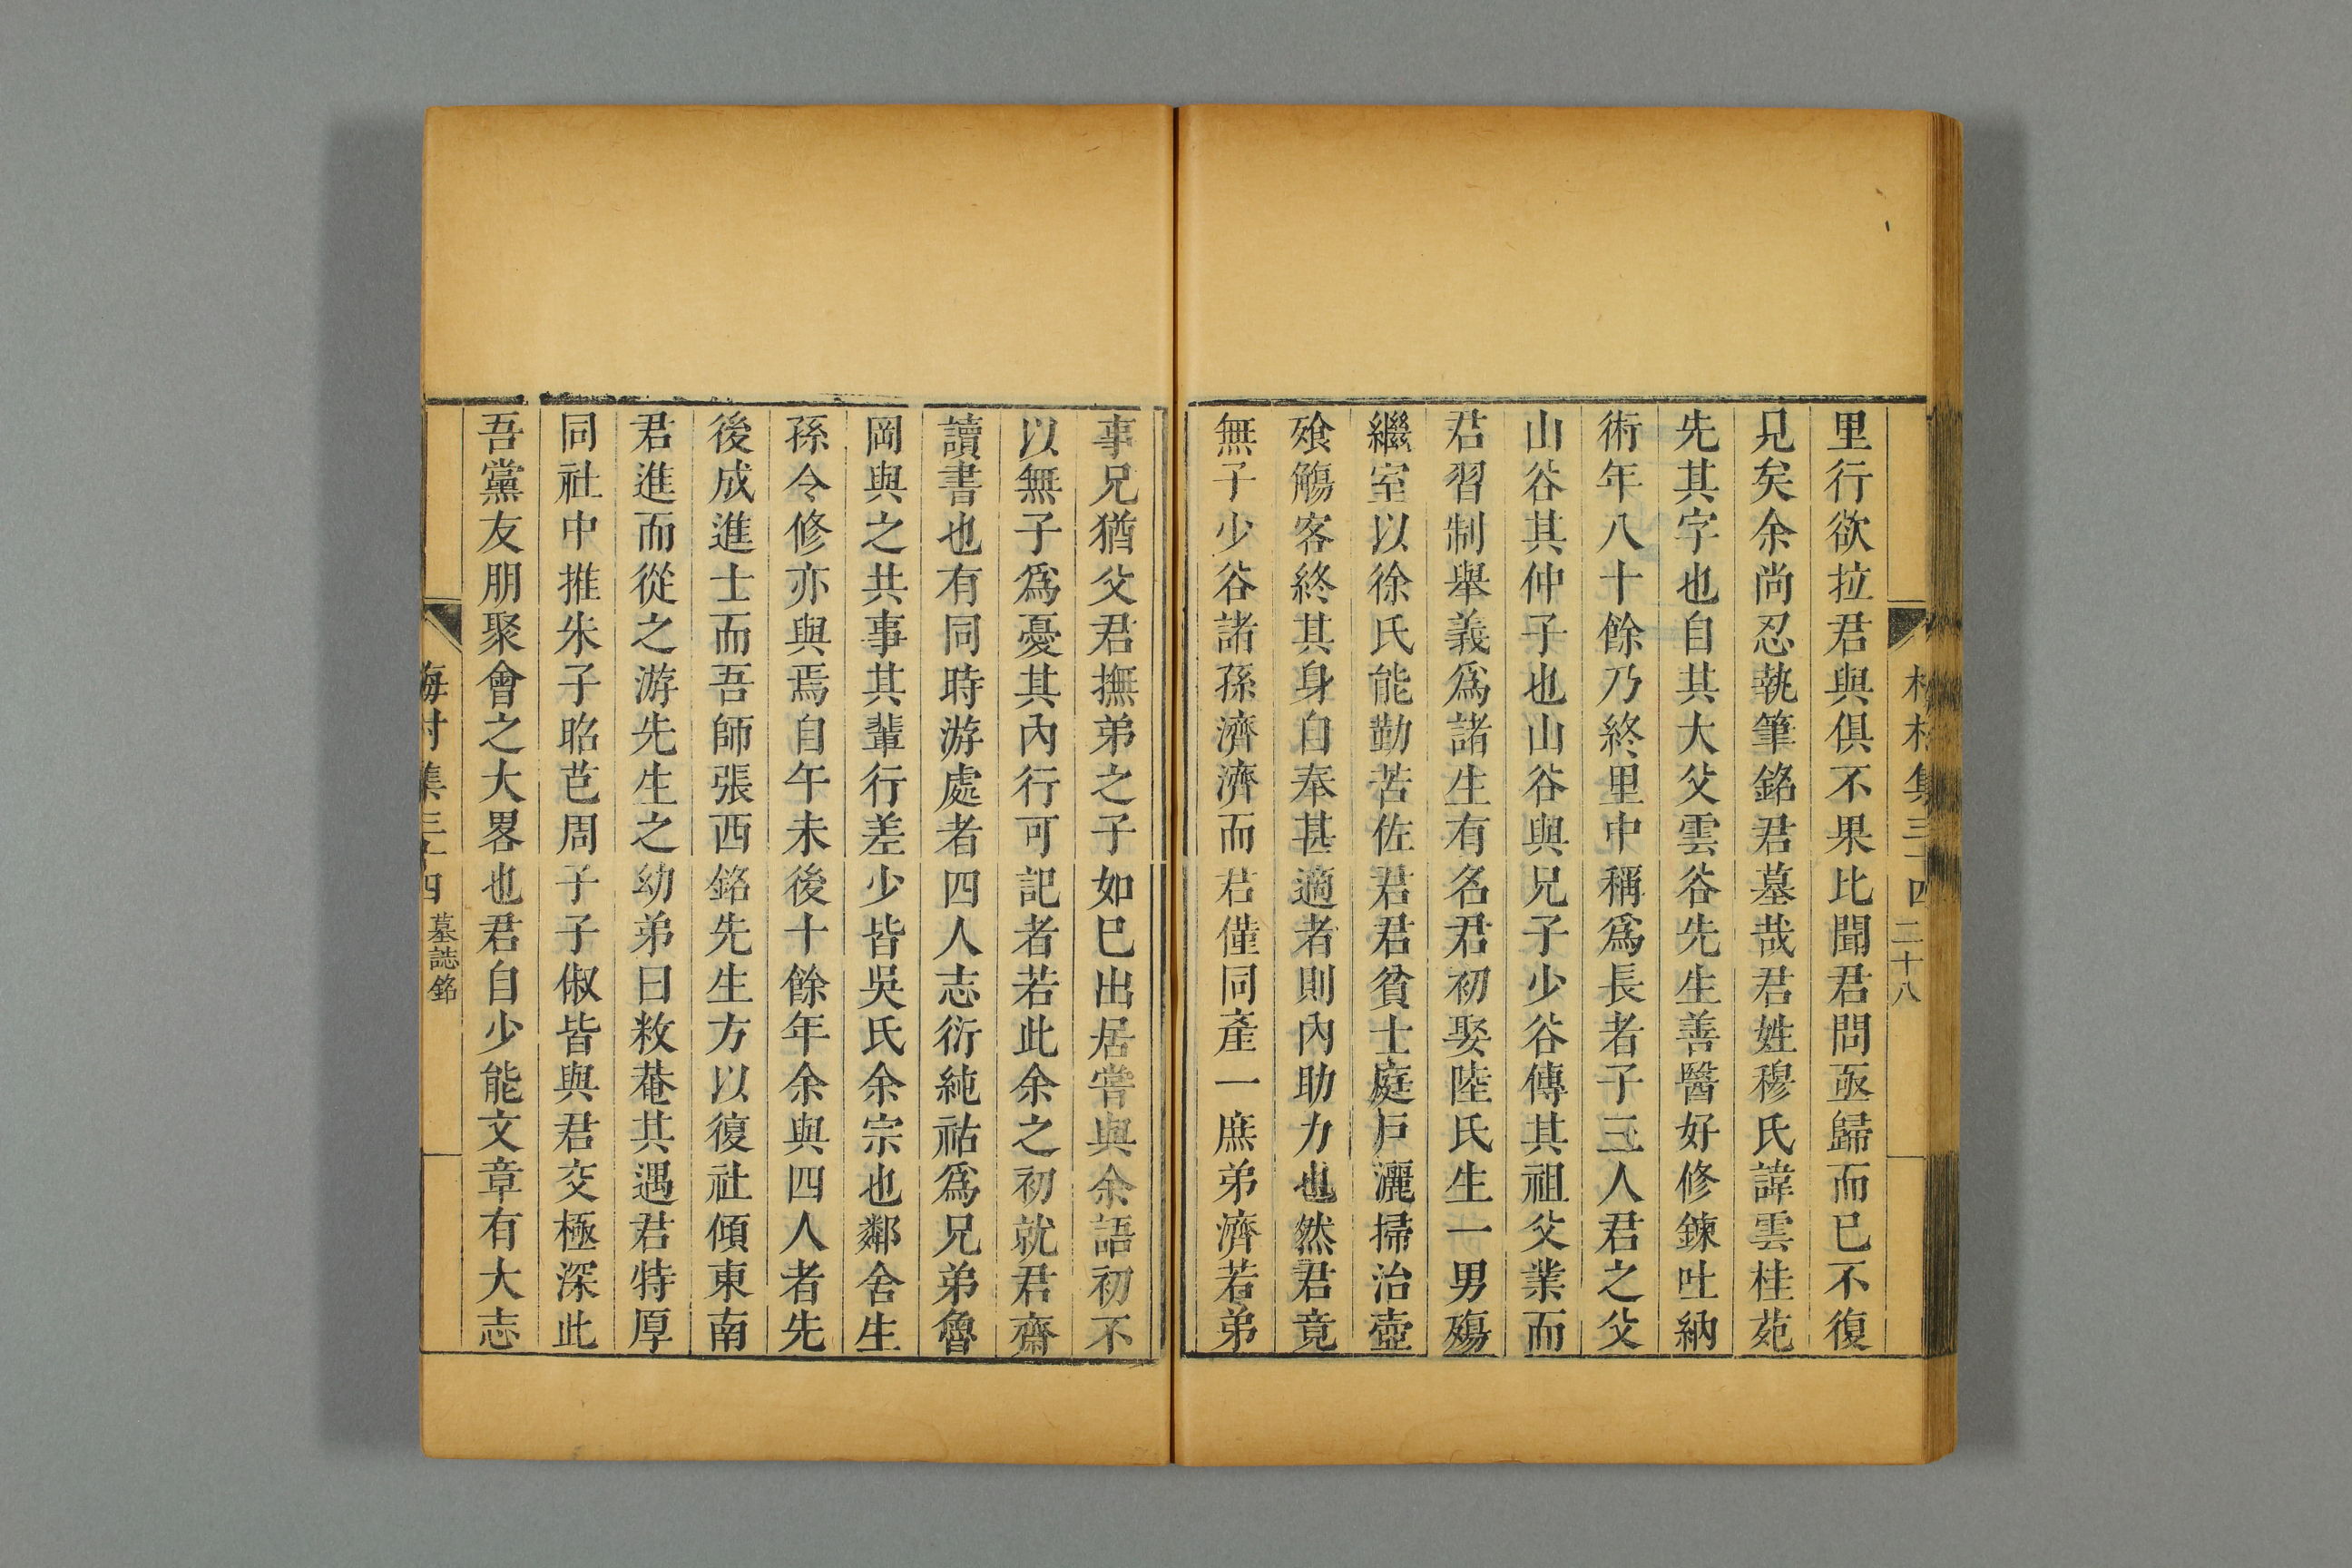 里行欲拉君與俱不果比聞君問亟歸而已不復
見矣余尚忍執筆銘君墓哉君姓穆氏諱雲桂苑
先其字也自其大父雲谷先生善醫好修鍊吐納
術年八十餘乃終里中稱爲長者子三人君之父
山谷其仲子也山谷與兄子少谷傳其祖父業而
君習制舉義爲諸生有名君初娶陸氏生一男殤
繼室以徐氏能勤苦佐君君貧士庭戸灑掃治壺
飱觴客終其身自奉甚適者則內助力也然君竟
無子少谷諸孫濟濟而君僅同產一庶弟濟若弟
事兄猶父君撫弟之子如已出居嘗與余語初不
以無子爲憂其內行可記者若此余之初就君齋
讀書也有同時游處者四人志衍純祜爲兄弟魯
岡與之共事其輩行差少皆吳氏余宗也鄰舍生
孫令修亦與焉自午未後十餘年余與四人者先
後成進士而吾師張西銘先生方以復社傾東南
君進而從之游先生之幼弟曰敉菴其遇君特厚
同社中推朱子昭芑周子子俶皆與君交極深此
吾黨友朋聚會之大畧也君自少能文章有大志
梅村集三十四 墓誌銘
二十八